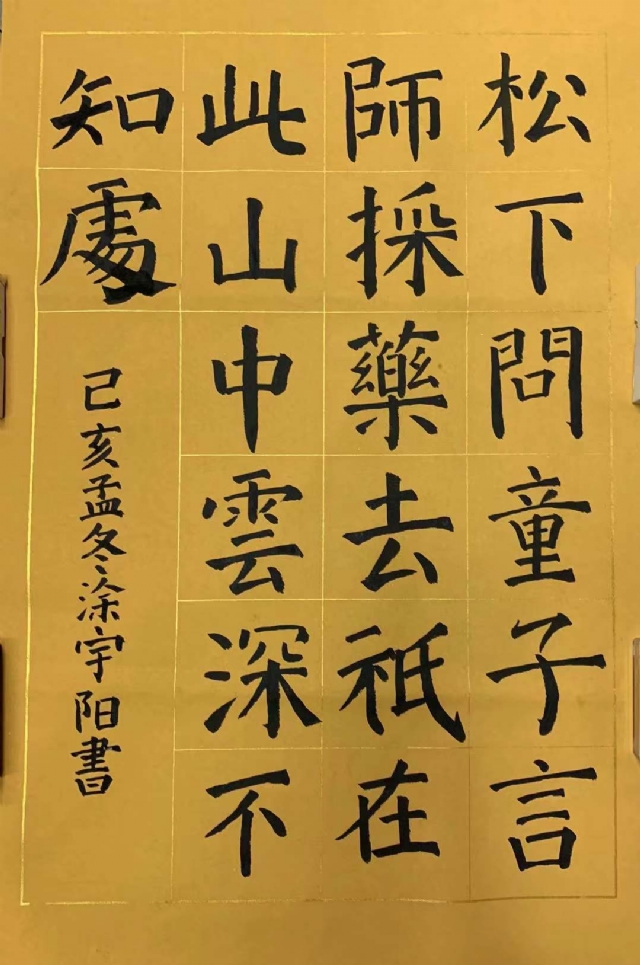 松下問童子言
師採藥去祇在
此山中雲深不
知處
己亥孟冬涂宇阳書